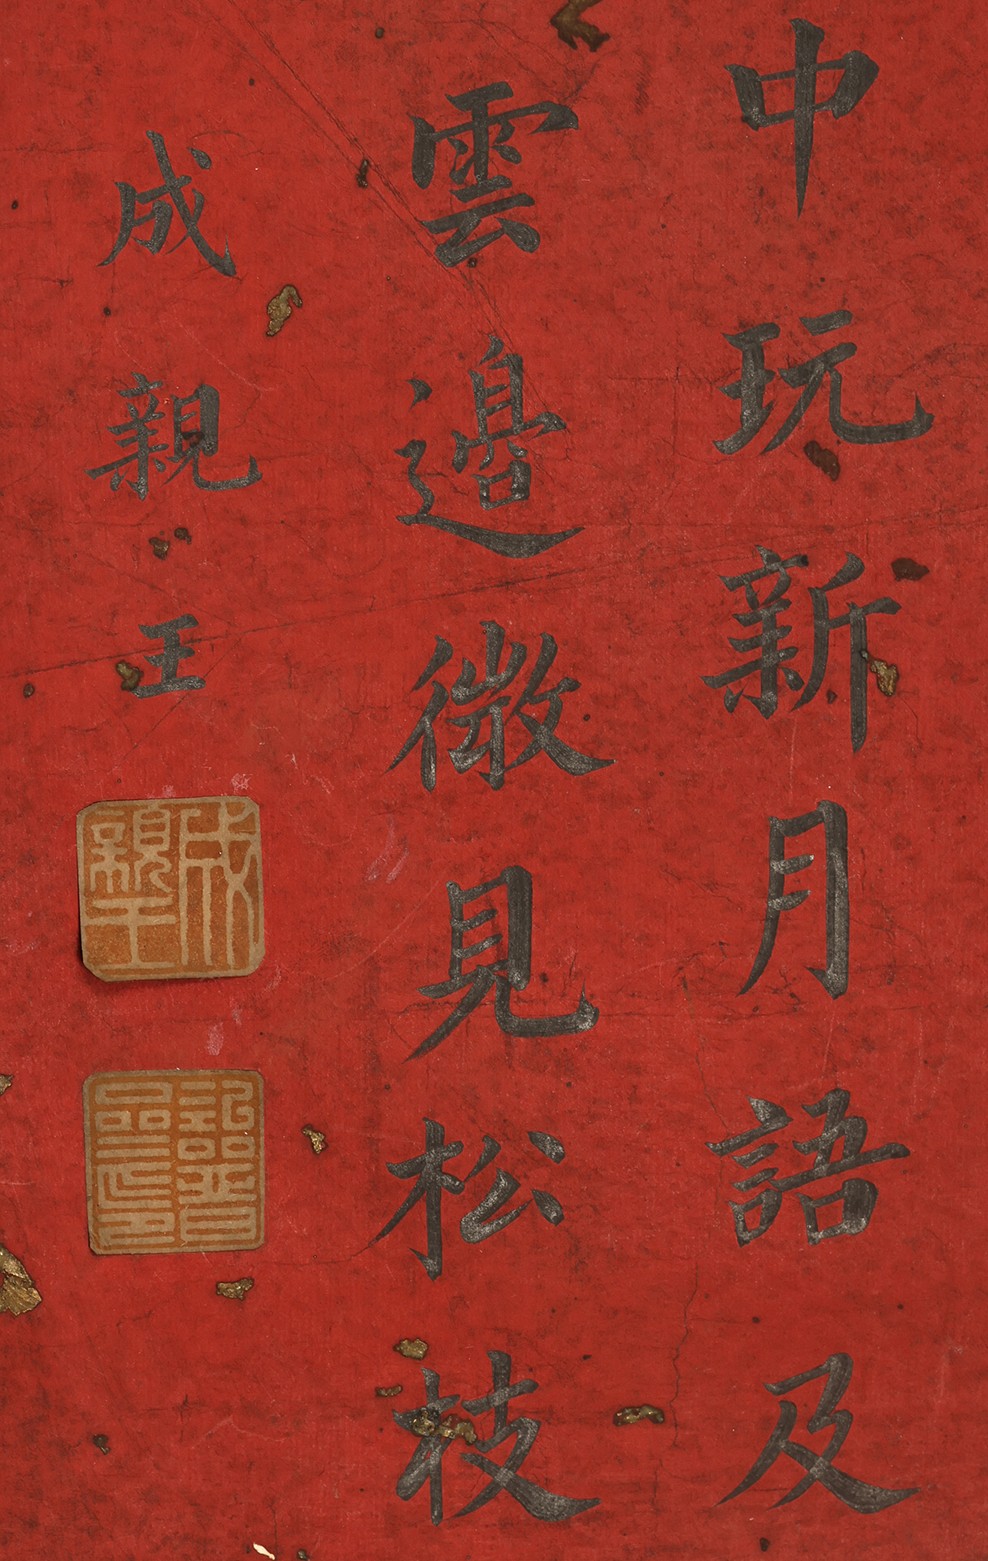 中玩新月語及
雲邊微見松枝
成親王
成親王
詒晉齋印